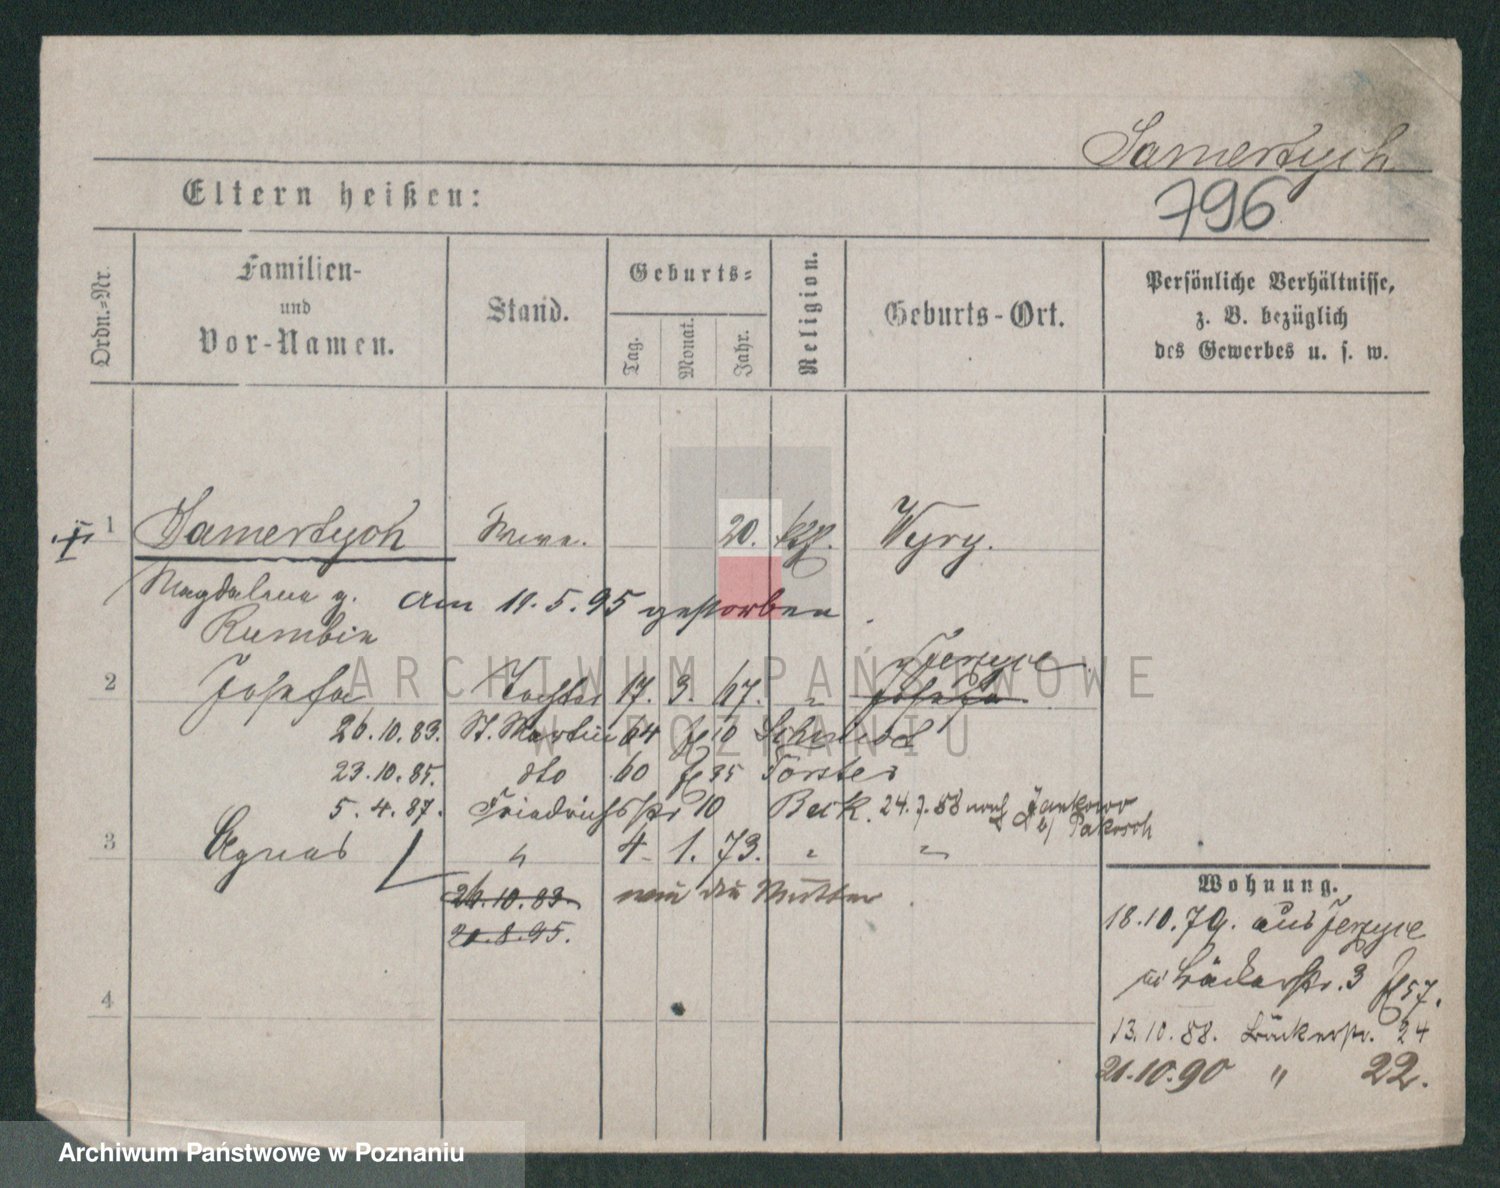 Samertych
796
Eltern heißen:
Ordn.-Nr.
Familien-
und
Vor-Namen.
Stand.
Geburts-
Tag.
Monat.
Jahr.
Religion.
Geburts-Ort.
Persönliche Verhältnisse,
z. B. bezüglich
des Gewerbes u. s. w.
1 Samertych Wwe. 20. kth. Wyry.
Magdalena g. am 11.5.95 gestorben
Rumbin
2 Josefa Tochter 17. 3. 67. " Jerzyce
Josefa
26.10.83. St. Martin 64 10 Schmidt
23.10.85. dto 60 35 Forster
5.4.87. Friedrichsstr 10 Beck. 24.7.88 nach Jankowo
b/ Pakosch
3 Agnes " 4. 1. 73. " "
26.10.83 wie die Mutter
20.8.95.
4
Wohnung.
18.10.79. aus Jerzyce
Bäckerstr. 3 57.
13.10.88. Bäckerstr. 24
21.10.90 " 22.
ARCHIWUM PAŃSTWOWE
W POZNANIU
Archiwum Państwowe w Poznaniu